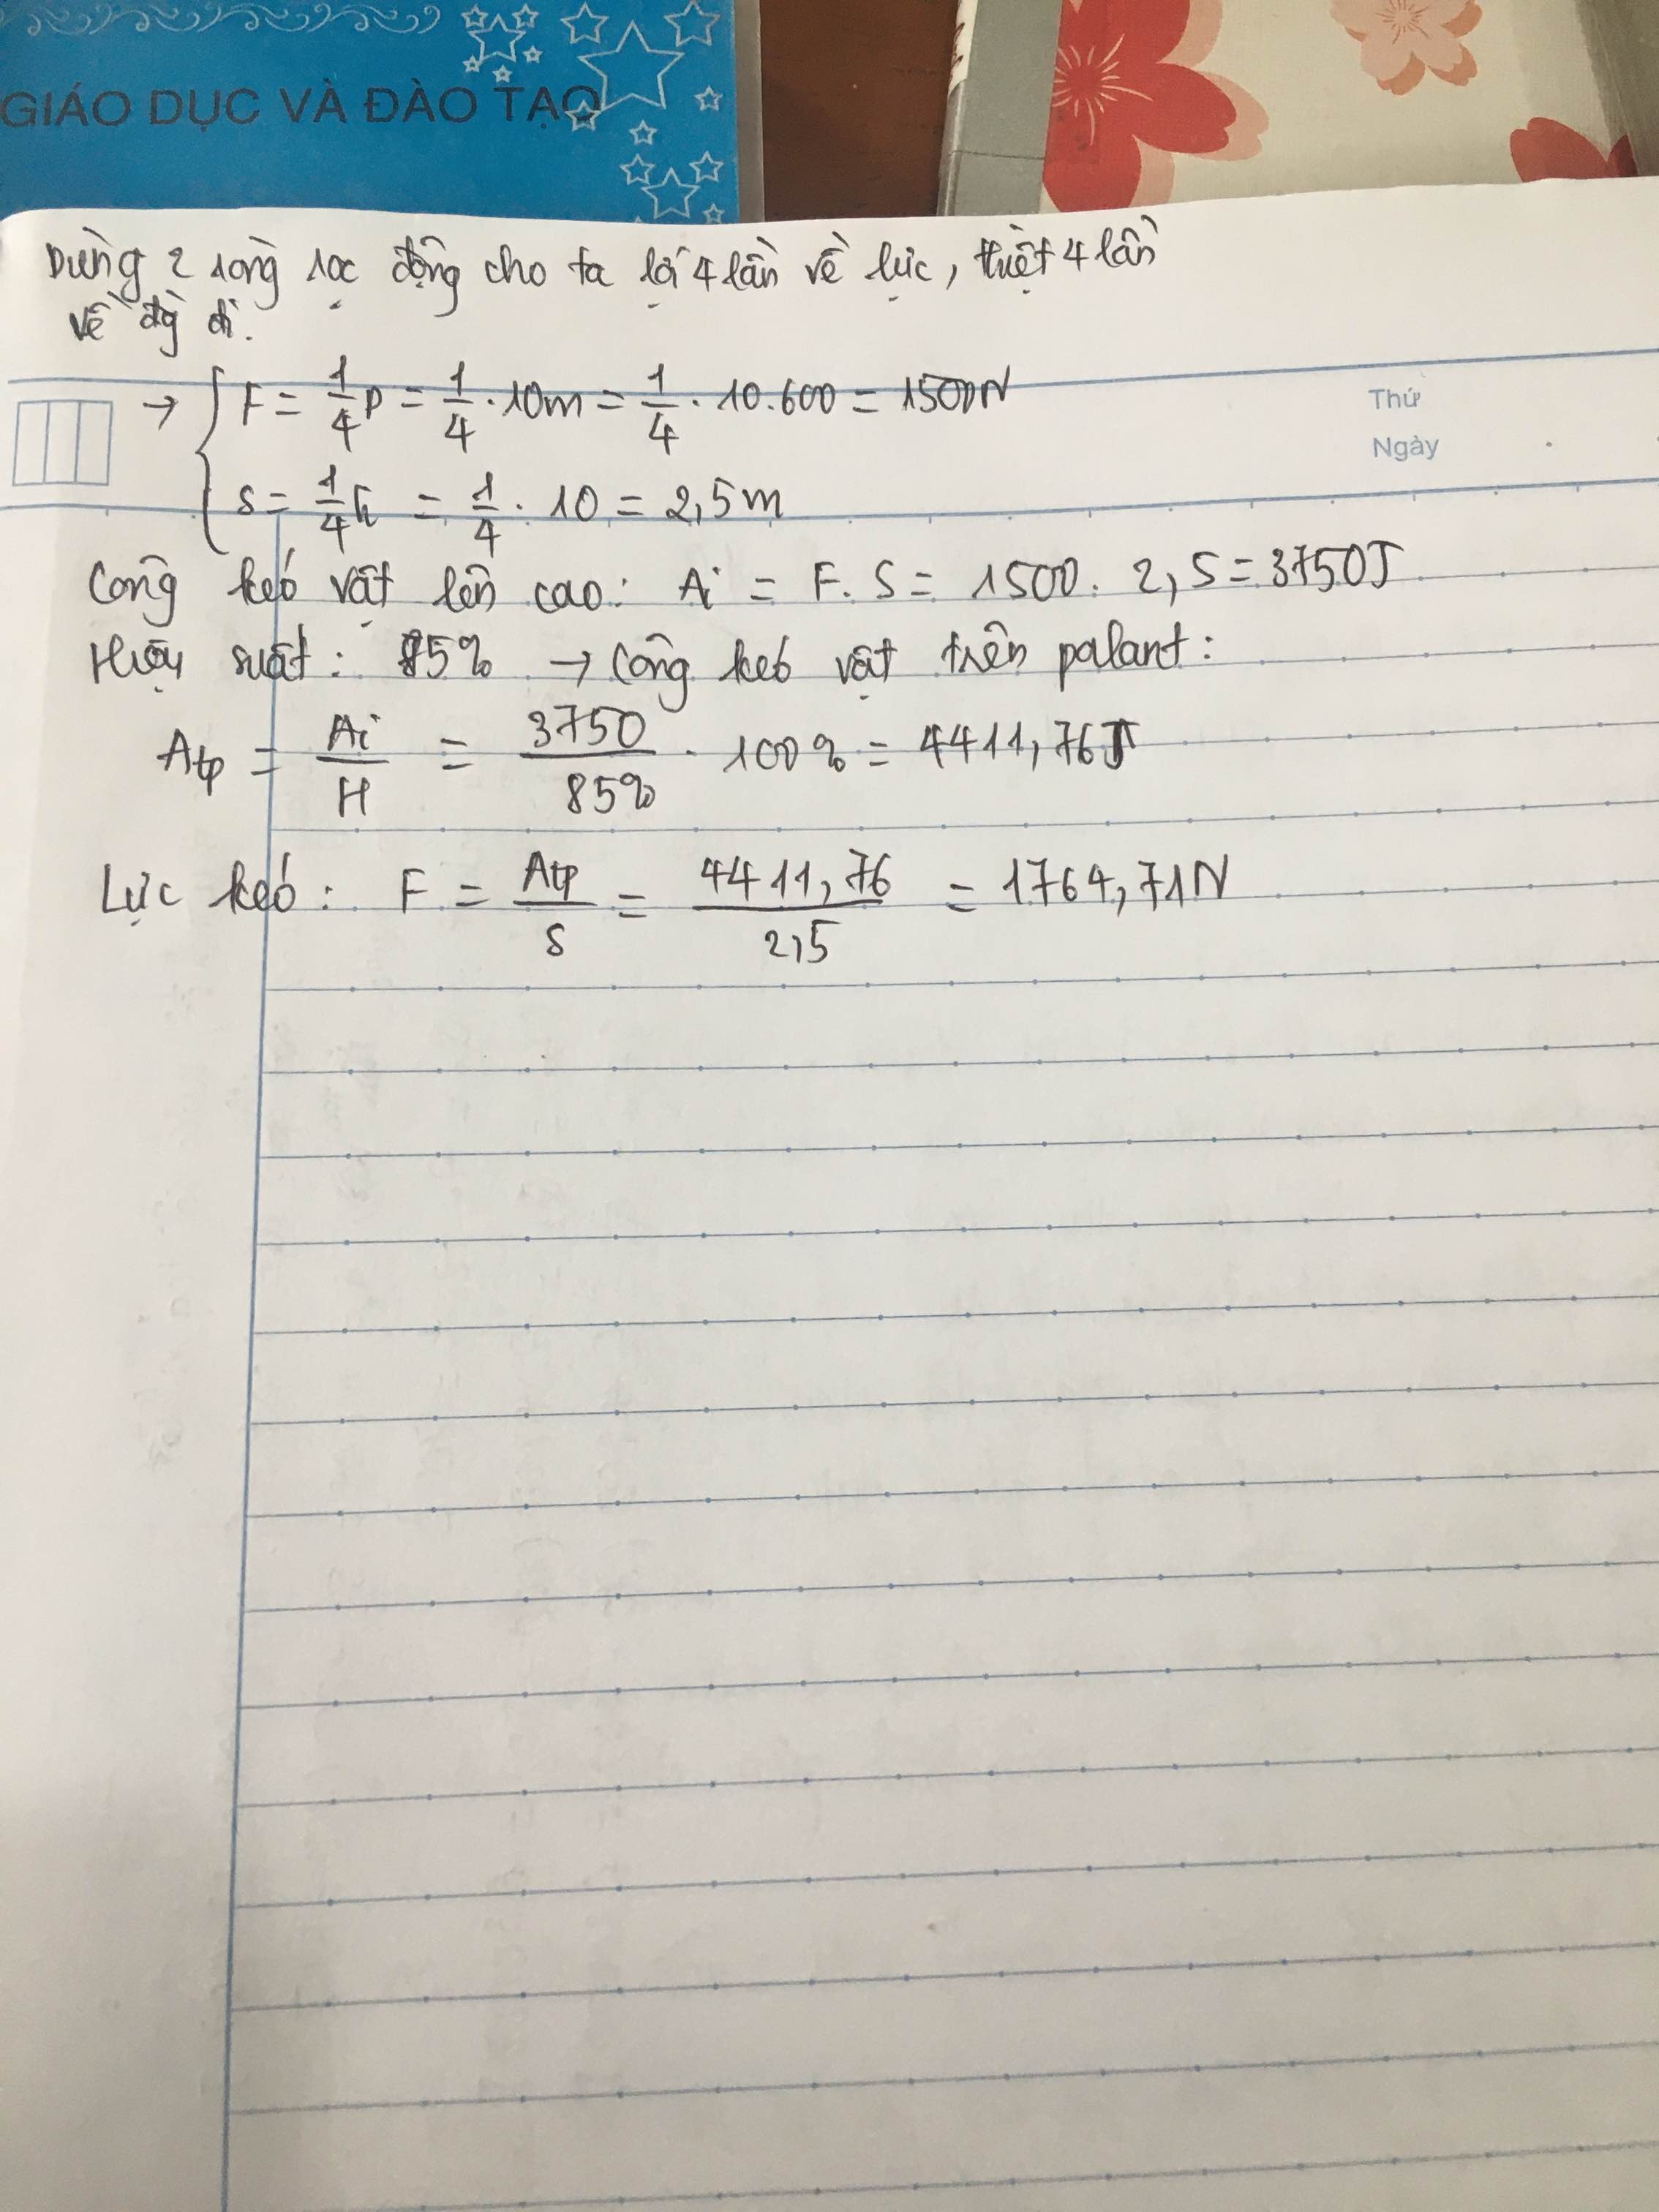 GIÁO DỤC VÀ ĐÀO TẠO
Dùng 2 ròng rọc động cho ta lợi 4 lần về lực, thiệt 4 lần
về đg đi.
→ { F = 1/4 P = 1/4 . 10m = 1/4 . 10.600 = 1500N
Thứ
Ngày
s = 1/4 h = 1/4 . 10 = 2,5m
Công kéo vật lên cao: Ai = F. S = 1500. 2,5 = 3750J
Hiệu suất: 85% → Công kéo vật trên palant:
Atp = Ai/H = 3750/85% . 100% = 4411,76J
Lực kéo: F = Atp/s = 4411,76/2,5 = 1764,71N